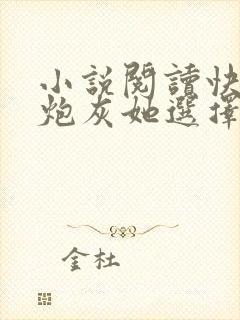 小說閱讀快
炮灰她選擇
金杜